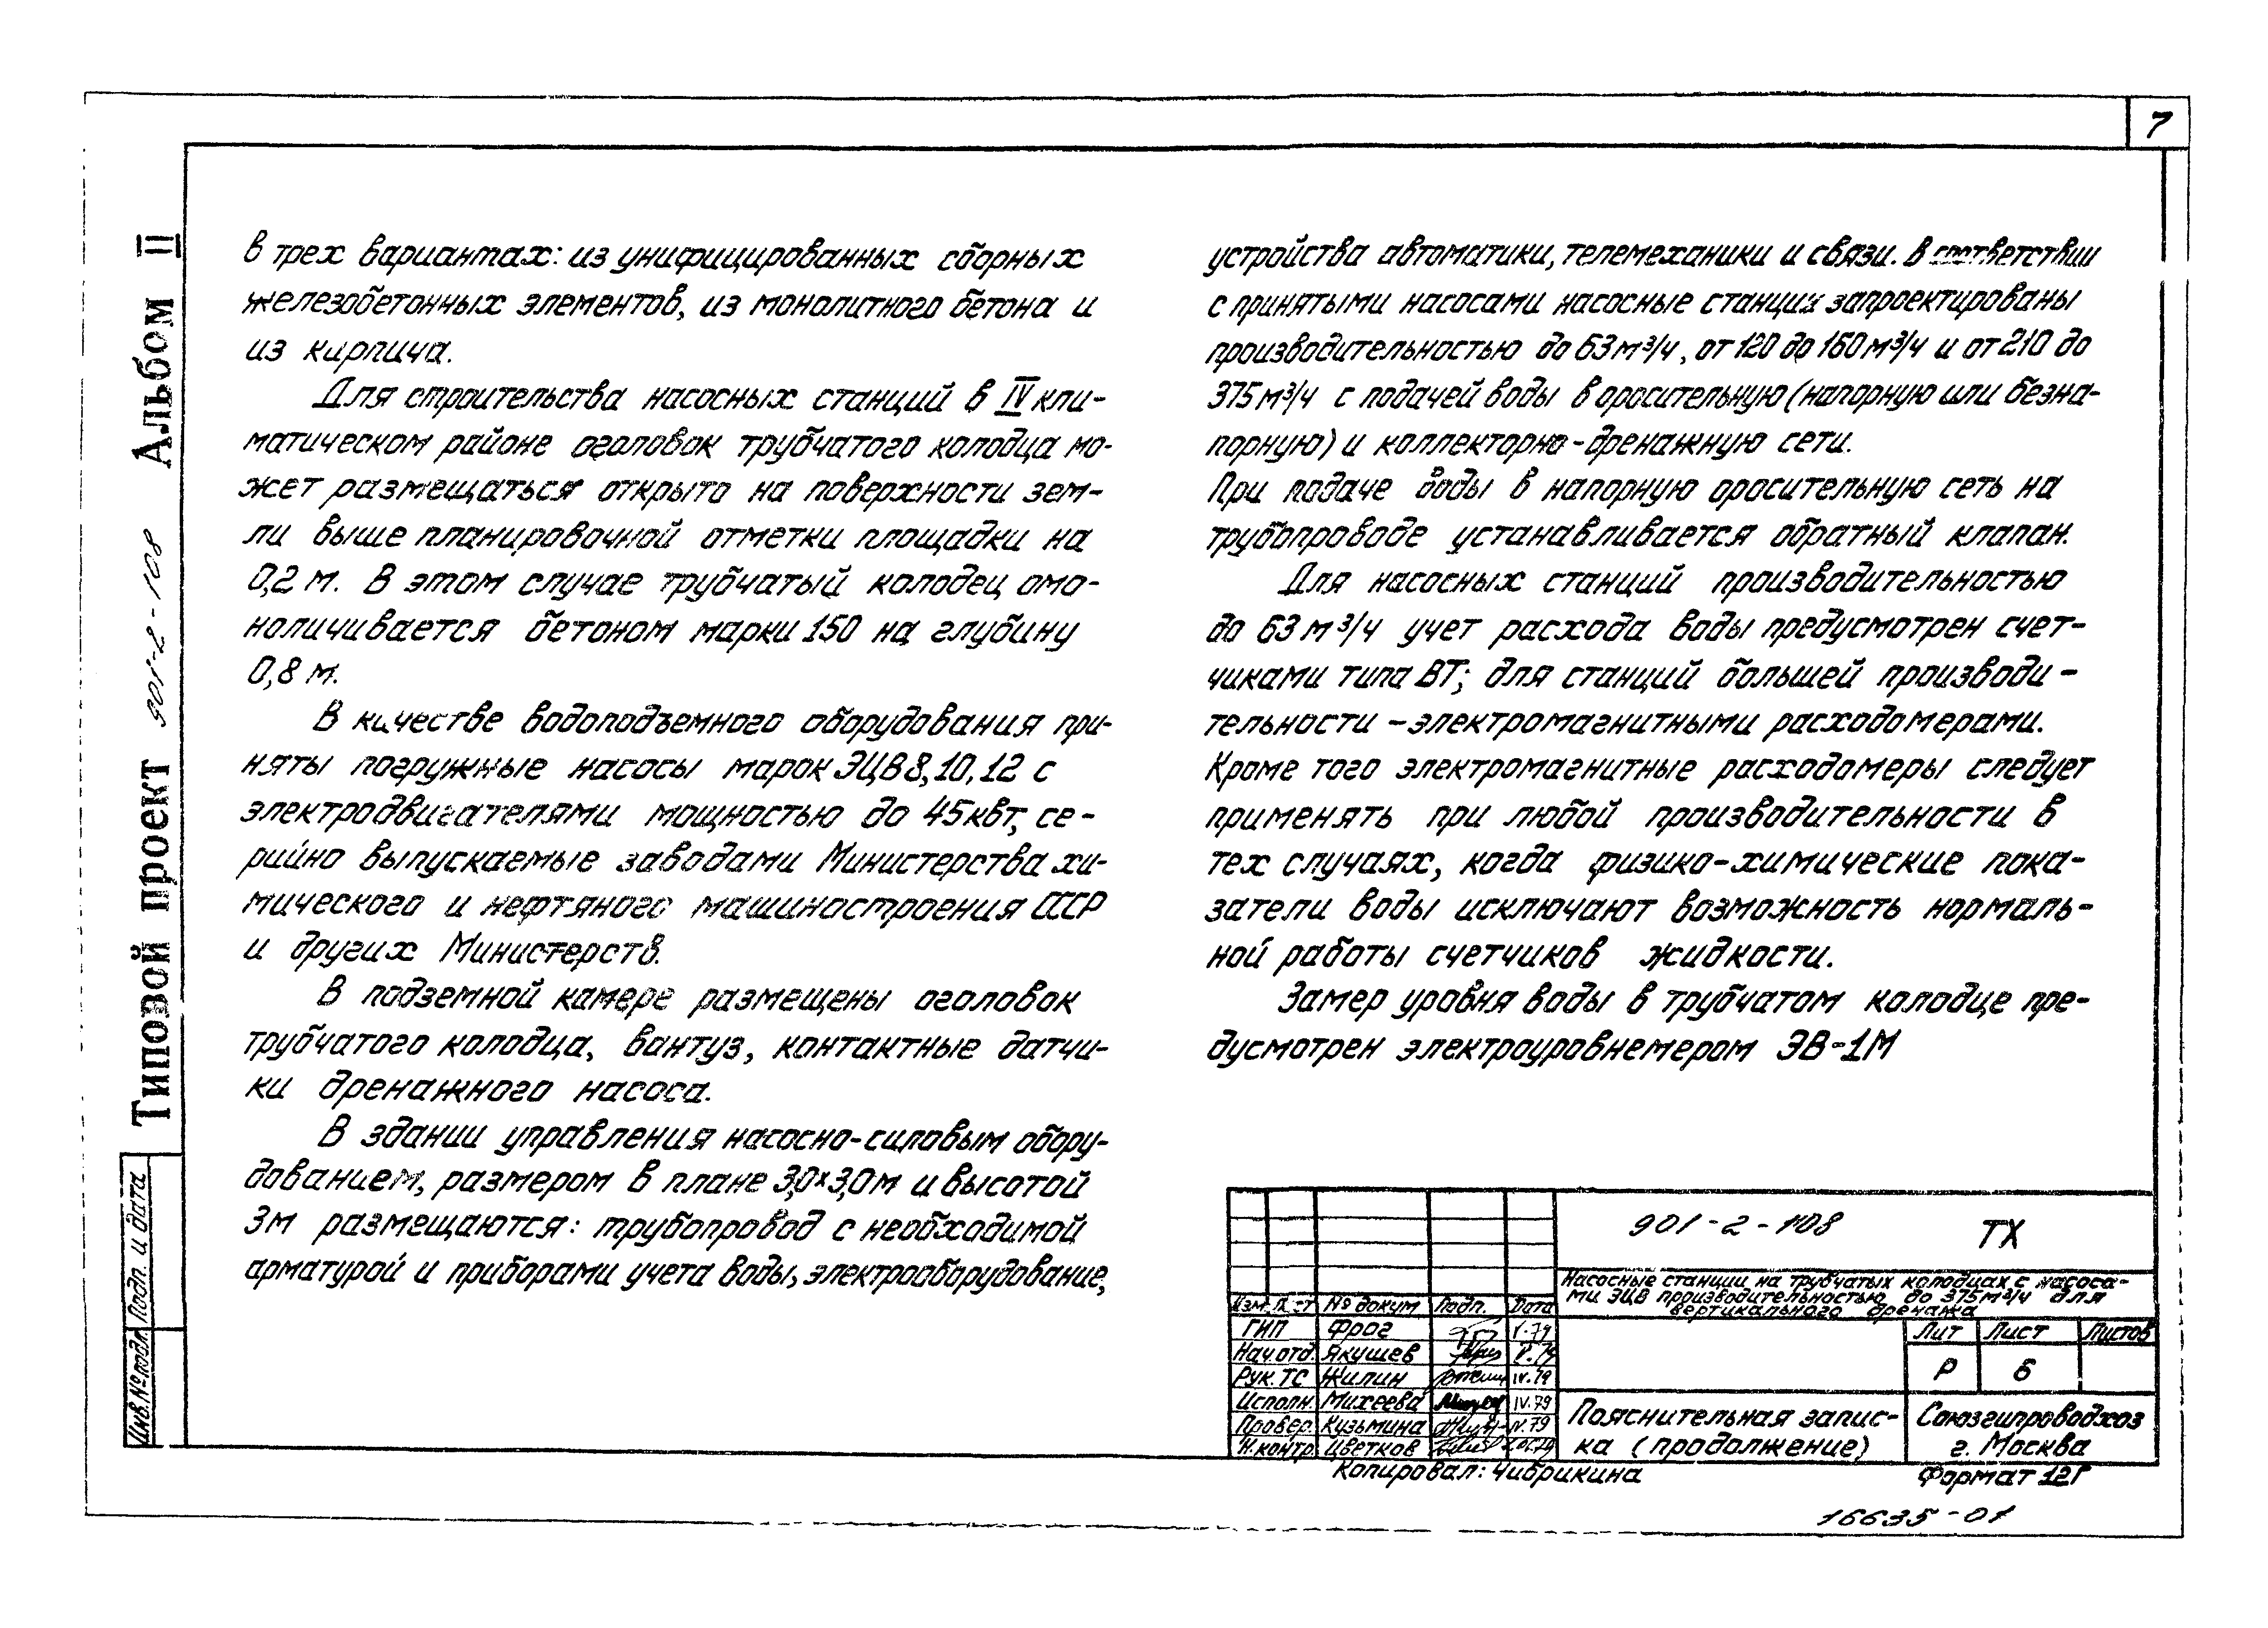 7
Типовой проект 901-2-108 Альбом II
в трех вариантах: из унифицированных сборных
железобетонных элементов, из монолитного бетона и
из кирпича.
Для строительства насосных станций в IV кли-
матическом районе оголовок трубчатого колодца мо-
жет размещаться открыто на поверхности зем-
ли выше планировочной отметки площадки на
0,2 м. В этом случае трубчатый колодец омо-
ноличивается бетоном марки 150 на глубину
0,8 м.
В качестве водоподъемного оборудования при-
няты погружные насосы марок ЭЦВ 8, 10, 12 с
электродвигателями мощностью до 45 квт, се-
рийно выпускаемые заводами Министерства хи-
мического и нефтяного машиностроения СССР
и других Министерств.
В подземной камере размещены оголовок
трубчатого колодца, вантуз, контактные датчи-
ки дренажного насоса.
В здании управления насосно-силовым обору-
дованием, размером в плане 3,0×3,0 м и высотой
3м размещаются: трубопровод с необходимой
арматурой и приборами учета воды, электрооборудование,
устройства автоматики, телемеханики и связи. В соответствии
с принятыми насосами насосные станции запроектированы
производительностью до 63 м³/ч, от 120 до 160 м³/ч и от 210 до
375 м³/ч с подачей воды в оросительную (напорную или безна-
порную) и коллекторно-дренажную сети.
При подаче воды в напорную оросительную сеть на
трубопроводе устанавливается обратный клапан.
Для насосных станций производительностью
до 63 м³/ч учет расхода воды предусмотрен счет-
чиками типа ВТ; для станций большей производи-
тельности - электромагнитными расходомерами.
Кроме того электромагнитные расходомеры следует
применять при любой производительности в
тех случаях, когда физико-химические пока-
затели воды исключают возможность нормаль-
ной работы счетчиков жидкости.
Замер уровня воды в трубчатом колодце пре-
дусмотрен электроуровнемером ЭВ-1М
901-2-108 ТХ
Насосные станции на трубчатых колодцах с насоса-
ми ЭЦВ производительностью до 375 м³/ч для
вертикального дренажа
Изм. Лист № докум Подп. Дата
ГИП Фрог V.79
Нач.отд. Якушев V.79
Рук. ТС Жилин IV.79
Исполн. Михеева IV.79
Провер. Кузьмина IV.79
Н.контр. Цветков
Лит Лист Листов
Р 6
Пояснительная запис-
ка (продолжение)
Союзгипроводхоз
г. Москва
Копировал: Чибрикина
Формат 12Г
16635-01
Инв.№подл. Подп. и дата